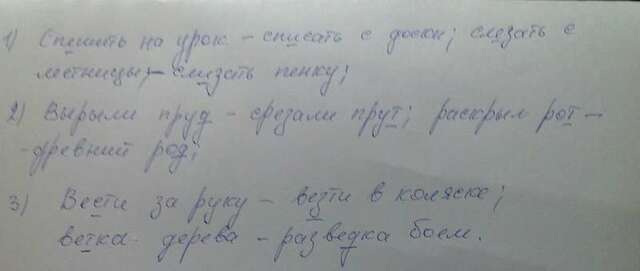 1) Спишить на урок - списать с доски; слезать с
лестницы;- слизать пенку;
2) Вырыли пруд - срезали прут; раскрыл рот -
- древний род;
3) Вести за руку - везти в коляске;
ветка дерева - разведка боем.